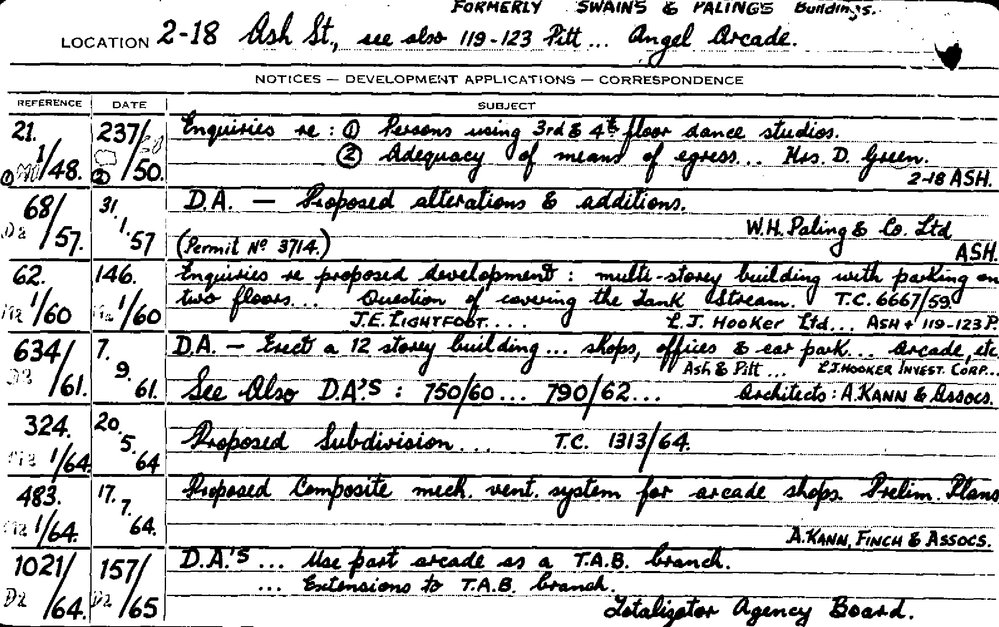 FORMERLY SWAINS & PALING'S Buildings.
LOCATION 2-18 Ash St., see also 119-123 Pitt ... Angel Arcade.
NOTICES — DEVELOPMENT APPLICATIONS — CORRESPONDENCE
REFERENCE DATE SUBJECT
21. 237/ Enquiries re: ① Persons using 3rd & 4th floor dance studios.
① 1/48. ② /50. ② Adequacy of means of egress... Mrs. D. Green.
2-18 ASH.
68/ 31. D.A. — Proposed alterations & additions.
D2 1. W.H. Paling & Co. Ltd
57. 57 (Permit Nº 3714.) ASH.
62. 146. Enquiries re proposed development: multi-storey building with parking on
1/60 1/60 two floors... Question of covering the Tank Stream. T.C. 6667/59
J.E. LIGHTFOOT.... L.J. Hooker Ltd... ASH + 119-123 P.
634/ 7. D.A. — Erect a 12 storey building... shops, offices & car park... arcade, etc.
D2 9. Ash & Pitt... L.J. HOOKER INVEST. CORP...
61. 61. See Also D.A.'S : 750/60... 790/62... Architects: A. KANN & ASSOCS.
324. 20. Proposed Subdivision... T.C. 1313/64.
1/64. 5. 64
483. 17. Proposed Composite mech. vent. system for arcade shops. Prelim. Plans
1/64. 7. 64. A. KANN, FINCH & ASSOCS.
1021/ 157/ D.A.'S ... Use part arcade as a T.A.B. branch.
D2 D2 ... Extensions to T.A.B. branch.
64. /65 Totalizator Agency Board.